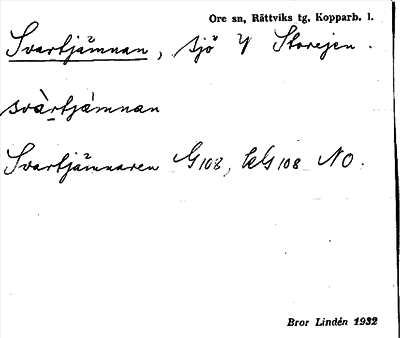 Ore sn, Rättviks tg, Kopparb. l.
Svartjämnan, sjö V Storejen.
svàrtjàmnan
Svartjämnaren G108, kG108 NO.
Bror Lindén 1932